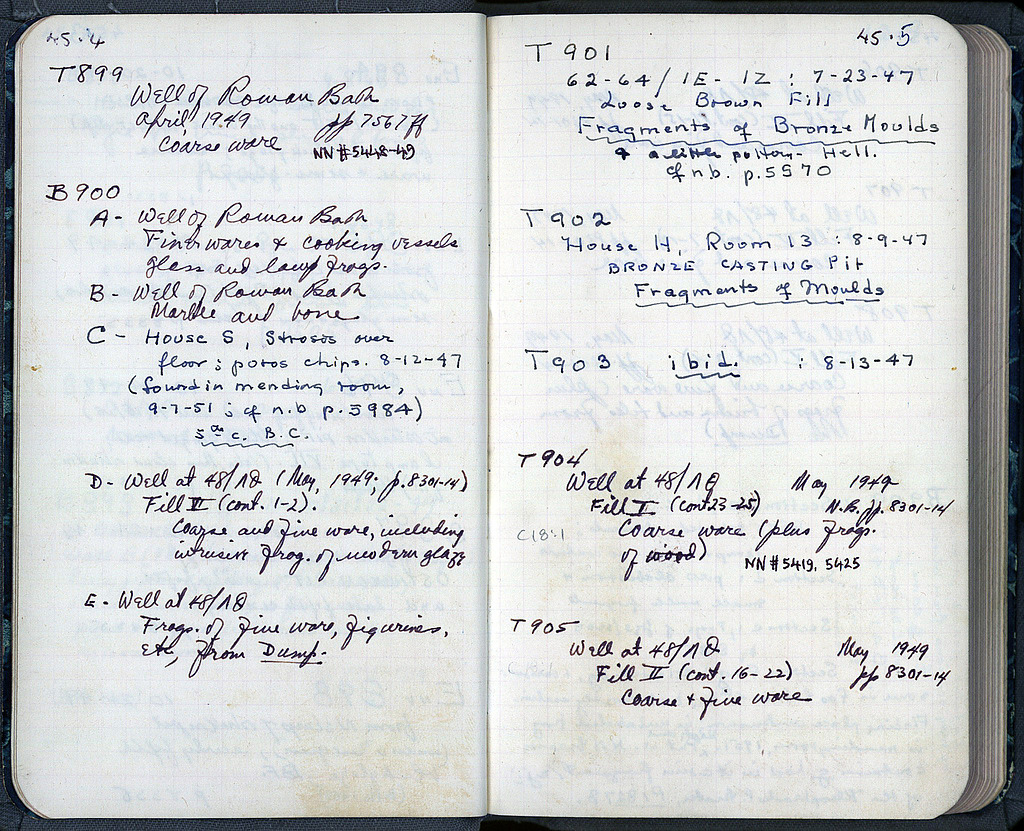 45·4
T899
Well of Roman Bath
April, 1949 pp 7567ff
Coarse ware
NN #5448-49
B900
A- Well of Roman Bath
Fine wares & cooking vessels
glass and lamp frags.
B- Well of Roman Bath
Marble and bone
C- House S, Strosis over
floor; poros chips. 8-12-47
(found in mending room,
9-7-51; cf n.b p.5984)
5th c. B.C.
D- Well at 48/ΛΘ (May, 1949; p.8301-14)
Fill II (cont. 1-2).
Coarse and fine ware, including
intrusive frag. of modern glaze
E- Well at 48/ΛΘ
Frags. of fine ware, figurines,
etc, from Dump.
45·5
T901
62-64/ΙΕ-ΙΖ : 7-23-47
Loose Brown Fill
Fragments of Bronze Moulds
& a little pottery- Hell.
cf nb. p.5970
T902
House H, Room 13 : 8-9-47
BRONZE CASTING Pit
Fragments of Moulds
T903 ibid. : 8-13-47
T904
Well at 48/ΛΘ May 1949
Fill I (cont 23-25) N.B. pp. 8301-14
Coarse ware (plus frags.
C18:1
of wood)
NN #5419, 5425
T905
Well at 48/ΛΘ May 1949
Fill II (cont. 16-22) pp 8301-14
Coarse & fine ware